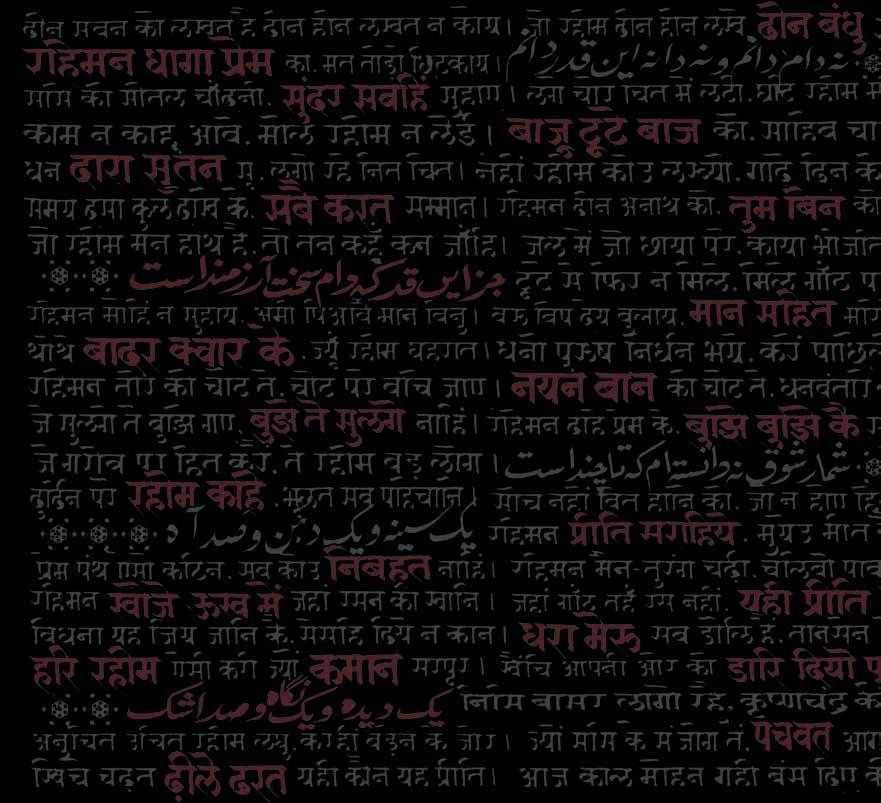 दीन सबन को लखत है दीन हीन लखत न कोय। जो रहीम दीन हीन लखे दीन बंधु
रहिमन धागा प्रेम का. मत तोड़ो छिटकाय। نه دام دانم و نه دانه این قدر دانم
ससि की सीतल चाँदनी. सुंदर सबहिं सुहाय। लगे चोर चित में लटी. घटि रहीम म
काम न काहू आवे. मोल रहीम न लेई। बाजू टूटे बाज को. साहिब चा
धन दारा सुतन में. लगो रहे नित चित्त। नहीं रहीम कोउ लख्यो. गाढ़े दिन के
समय दसा कुल देखि के. सबै करत सम्मान। रहिमन दीन अनाथ को. तुम बिन को
जो रहीम मन हाथ है. तो तन कहुँ कन जाहि। जल में जो छाया परे. काया भीजति
جز ایں قدر کہ دام سخت آرزومند است टूटे से फिर न मिले. मिले गाँठ प
रहिमन मोहिं न सुहाय. अमी पिआवे मान बिनु। बरु विष देय बुलाय. मान सहित मरि
थोथे बादर क्वार के. ज्यों रहीम घहरात। धनी पुरुष निर्धन भये. करै पाछिल
रहिमन तीर की चोट ते. चोट परे बचि जाए। नयन बान की चोट ते. धनवंतरि
जे सुलगे ते बुझि गए. बुझे ते सुलगे नाहिं। रहिमन दाहे प्रेम के. बुझि बुझि कै
जे गरीब पर हित करें. ते रहीम बड़ लोग। شمار شوق نه دانسته ام که تا چند است
दुर्दिन परे रहीम कहि. भूलत सब पहिचानि। सोच नहीं वित हानि को. जो न होए हि
یک سینه و یک دہن و صد آہ रहिमन प्रीति सराहिये. मुएउ मीत
प्रेम पंथ ऐसो कठिन. सब कोउ निबहत नाहिं। रहिमन मैन-तुरंग चढ़ि. चलिबो पाव
रहिमन खोजे ऊख में जहाँ रसन की खानि। जहाँ गाँठ तहँ रस नहीं. यही प्रीति
विधना यह जिय जानि के. सेसहि दिये न कान। धरा मेरू सब डोलि हैं. तानसेन
हरि रहीम ऐसी करी ज्यों कमान सरपूर। खैंचि आपनी ओर को डारि दियो प
یک دیده و یک نگاه و صد اشک निसि बासर लागो रहै. कृष्णचंद्र के
अनुचित उचित रहीम लघु. करहिं बड़ेन के जोर। ज्यों ससि के संजोग तें. पचवत आग
खिंचे चढ़त ढीले ढरत यही कौन यह प्रीति। आज काल मोहन गही बंस दिए क